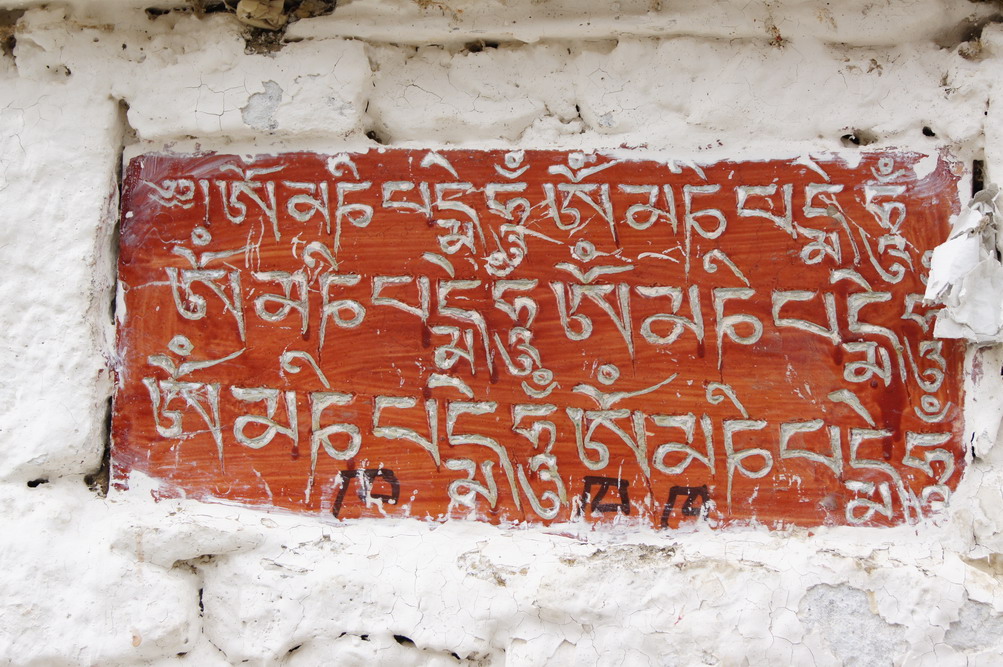 ༄། ཨོཾ་མ་ཎི་པདྨེ་ཧཱུྃ་ཨོཾ་མ་ཎི་པདྨེ་ཧཱུྃ
ཨོཾ་མ་ཎི་པདྨེ་ཧཱུྃ་ཨོཾ་མ་ཎི་པདྨེ་ཧཱུྃ
ཨོཾ་མ་ཎི་པདྨེ་ཧཱུྃ་ཨོཾ་མ་ཎི་པདྨེ་ཧཱུྃ